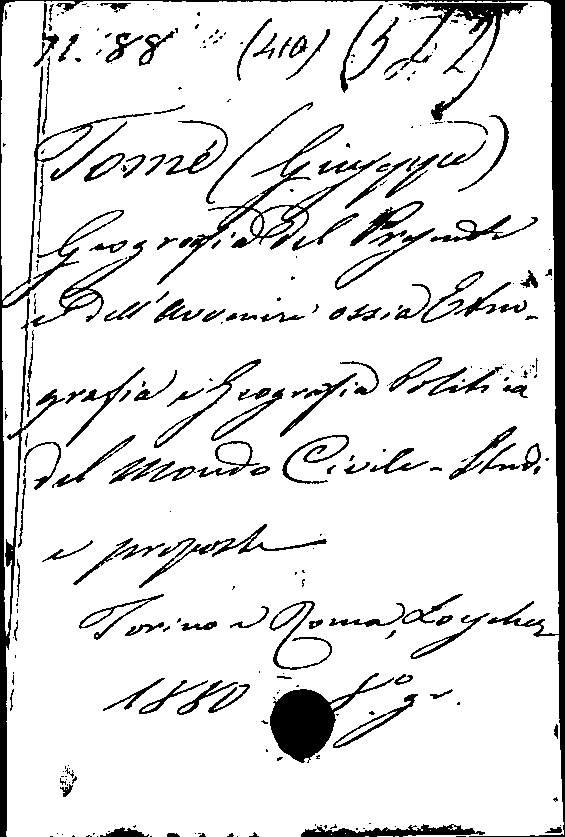 11. 88 (410) (522)
Tomé (Giuseppe)
Geografia del Presente
e Dell'Avvenire ossia Etno-
grafia e Geografia Politica
del Mondo Civile - Studi
e proposte
Torino e Roma, Loescher
1880 8.° gr.